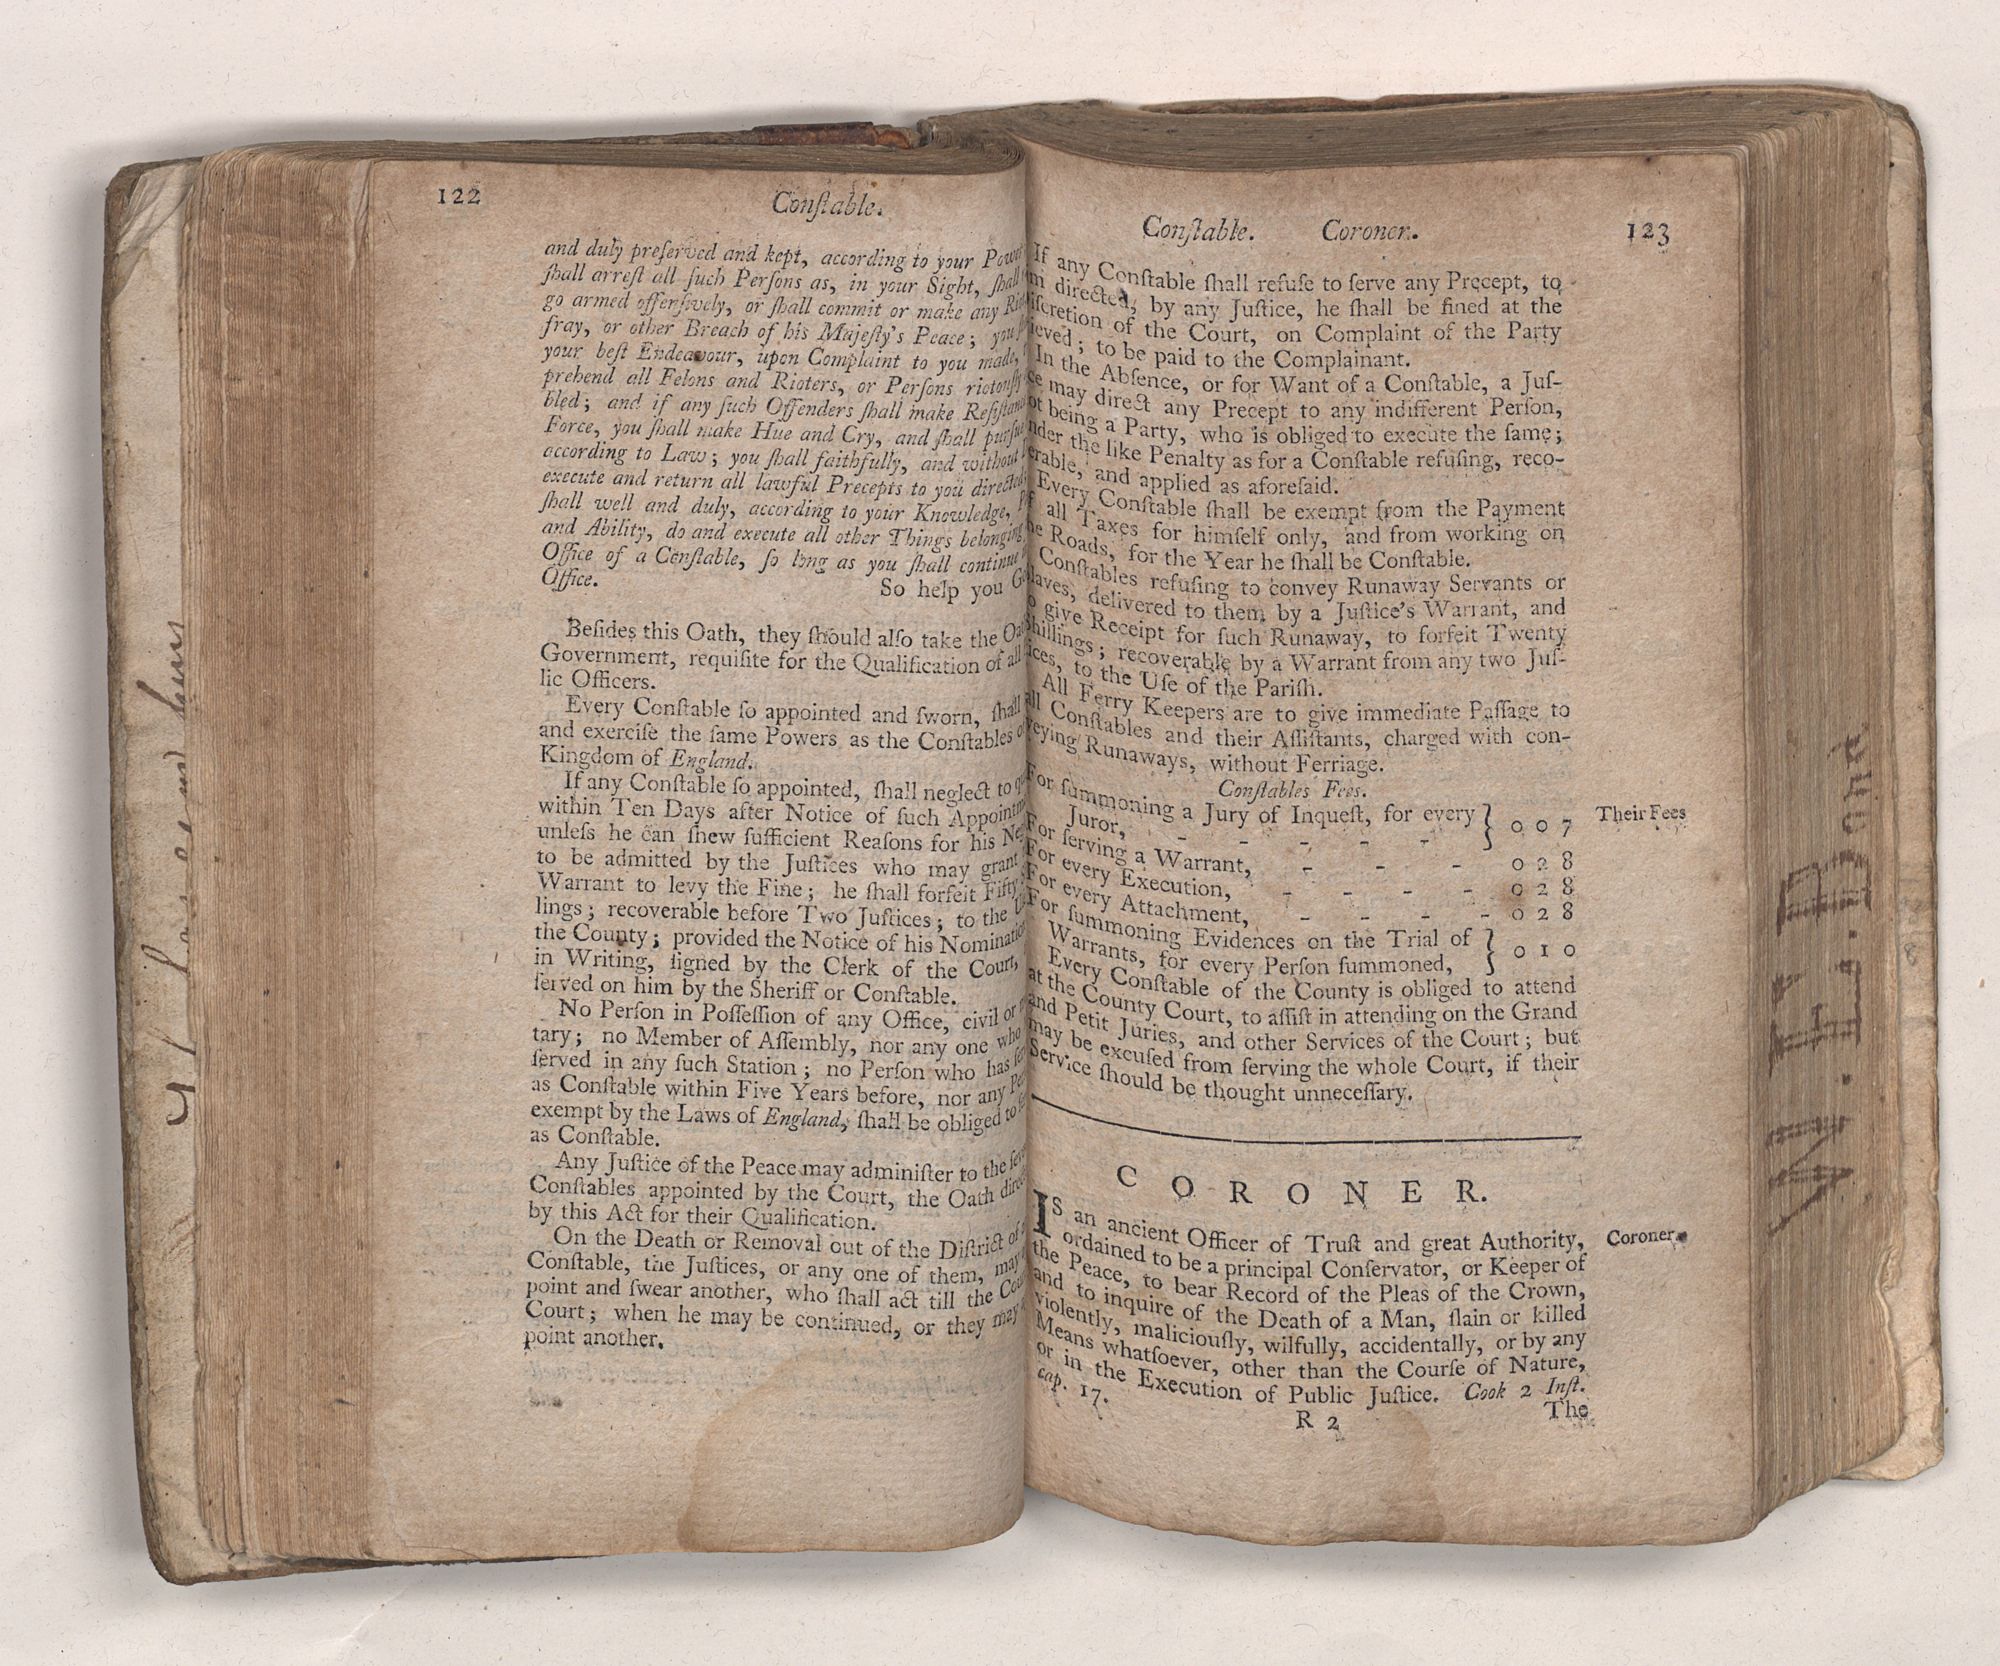 122
Conſtable.
and duly preſerved and kept, according to your Power
ſhall arreſt all ſuch Perſons as, in your Sight, ſhall
go armed offenſively, or ſhall commit or make any
fray, or other Breach of his Majeſty's Peace;
your beſt Endeavour, upon Complaint to you made,
prehend all Felons and Rioters, or Perſons riotouſly
bled; and if any ſuch Offenders ſhall make
Force, you ſhall make Hue and Cry, and ſhall purſue
according to Law; you ſhall faithfully, and without
execute and return all lawful Precepts to you directed;
ſhall well and duly, according to your Knowledge,
and Ability, do and execute all other Things belonging
Office of a Conſtable, ſo long as you ſhall continue
Office.
So help you
Beſides this Oath, they ſhould alſo take the
Government, requiſite for the Qualification of all
lic Officers.
Every Conſtable ſo appointed and ſworn, ſhall
and exerciſe the ſame Powers as the Conſtables
Kingdom of England.
If any Conſtable ſo appointed, ſhall neglect to
within Ten Days after Notice of ſuch
unleſs he can ſhew ſufficient Reaſons for his
to be admitted by the Juſtices who may grant
Warrant to levy the Fine; he ſhall forfeit Fifty
lings; recoverable before Two Juſtices; to the
the County; provided the Notice of his
in Writing, ſigned by the Clerk of the Court,
ſerved on him by the Sheriff or Conſtable.
No Perſon in Poſſeſſion of any Office, civil or
tary; no Member of Aſſembly, nor any one who
ſerved in any ſuch Station; no Perſon who has
as Conſtable within Five Years before, nor any
exempt by the Laws of England, ſhall be obliged to
as Conſtable.
Any Juſtice of the Peace may adminiſter to the
Conſtables appointed by the Court, the Oath
by this Act for their Qualification.
On the Death or Removal out of the Diſtrict of
Conſtable, the Juſtices, or any one of them, may
point and ſwear another, who ſhall act till the
Court; when he may be continued, or they may
point another.
Conſtable. Coroner. 123
If any Conſtable ſhall refuſe to ſerve any Precept, to
directed, by any Juſtice, he ſhall be fined at the
iſcretion of the Court, on Complaint of the Party
ieved; to be paid to the Complainant.
In the Abſence, or for Want of a Conſtable, a Juſ-
ce may direct any Precept to any indifferent Perſon,
ot being a Party, who is obliged to execute the ſame;
nder the like Penalty as for a Conſtable refuſing, reco-
erable, and applied as aforeſaid.
Every Conſtable ſhall be exempt from the Payment
f all Taxes for himſelf only, and from working on
he Roads, for the Year he ſhall be Conſtable.
Conſtables refuſing to convey Runaway Servants or
laves, delivered to them by a Juſtice's Warrant, and
o give Receipt for ſuch Runaway, to forfeit Twenty
Shillings; recoverable by a Warrant from any two Juſ-
ices, to the Uſe of the Pariſh.
All Ferry Keepers are to give immediate Paſſage to
all Conſtables and their Aſſiſtants, charged with con-
veying Runaways, without Ferriage.
Conſtables Fees.
For ſummoning a Jury of Inqueſt, for every
Juror, - - - - - } 0 0 7 Their Fees
For ſerving a Warrant, - - - 0 2 8
For every Execution, - - - - 0 2 8
For every Attachment, - - - - 0 2 8
For ſummoning Evidences on the Trial of
Warrants, for every Perſon ſummoned, } 0 1 0
Every Conſtable of the County is obliged to attend
at the County Court, to aſſiſt in attending on the Grand
and Petit Juries, and other Services of the Court; but
may be excuſed from ſerving the whole Court, if their
Service ſhould be thought unneceſſary.
CORONER.
IS an ancient Officer of Truſt and great Authority, Coroner.
ordained to be a principal Conſervator, or Keeper of
the Peace, to bear Record of the Pleas of the Crown,
and to inquire of the Death of a Man, ſlain or killed
violently, maliciouſly, wilfully, accidentally, or by any
Means whatſoever, other than the Courſe of Nature,
or in the Execution of Public Juſtice. Cook 2 Inſt.
cap. 17.
R 2 The